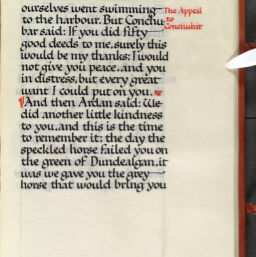 ourselves went swimming
to the harbour. But Conchu-
bar said: If you did fifty
good deeds to me, surely this
would be my thanks; I would
not give you peace, and you
in distress, but every great
want I could put on you.
¶And then Ardan said: We
did another little kindness
to you, and this is the time
to remember it; the day the
speckled horse failed you on
the green of Dundealgan, it
was we gave you the grey
horse that would bring you
The Appeal
to
Conchubar